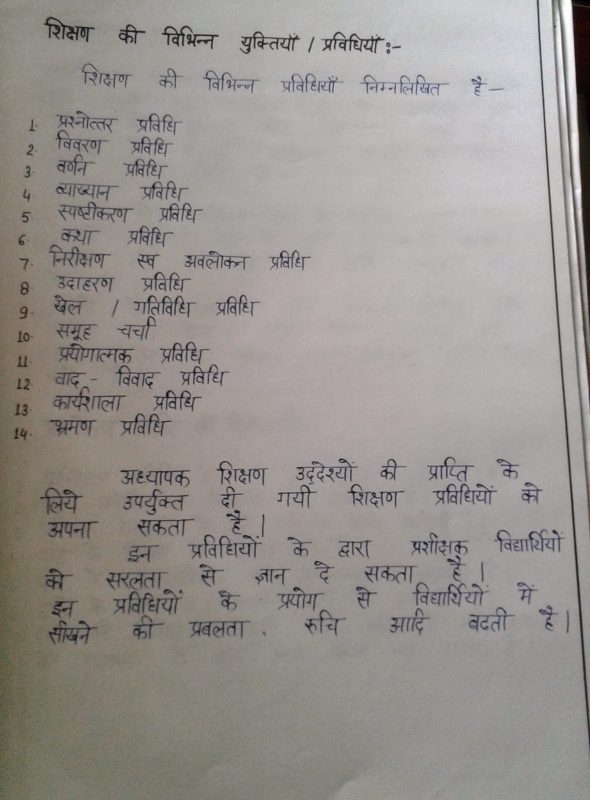 शिक्षण की विभिन्न युक्तियाँ / प्रविधियाँ :-
शिक्षण की विभिन्न प्रविधियाँ निम्नलिखित है -
1. प्रश्नोत्तर प्रविधि
2. विवरण प्रविधि
3. वर्णन प्रविधि
4. व्याख्यान प्रविधि
5. स्पष्टीकरण प्रविधि
6. कथा प्रविधि
7. निरीक्षण स्व अवलोकन प्रविधि
8. उदाहरण प्रविधि
9. खेल / गतिविधि प्रविधि
10. समूह चर्चा
11. प्रयोगात्मक प्रविधि
12. वाद - विवाद प्रविधि
13. कार्यशाला प्रविधि
14. भ्रमण प्रविधि
अध्यापक शिक्षण उद्देश्यों की प्राप्ति के
लिये उपर्युक्त दी गयी शिक्षण प्रविधियों को
अपना सकता है।
इन प्रविधियों के द्वारा प्रशीक्षक विद्यार्थियों
को सरलता से ज्ञान दे सकता है।
इन प्रविधियों के प्रयोग से विद्यार्थियों में
सीखने की प्रबलता, रुचि आदि बढती है।